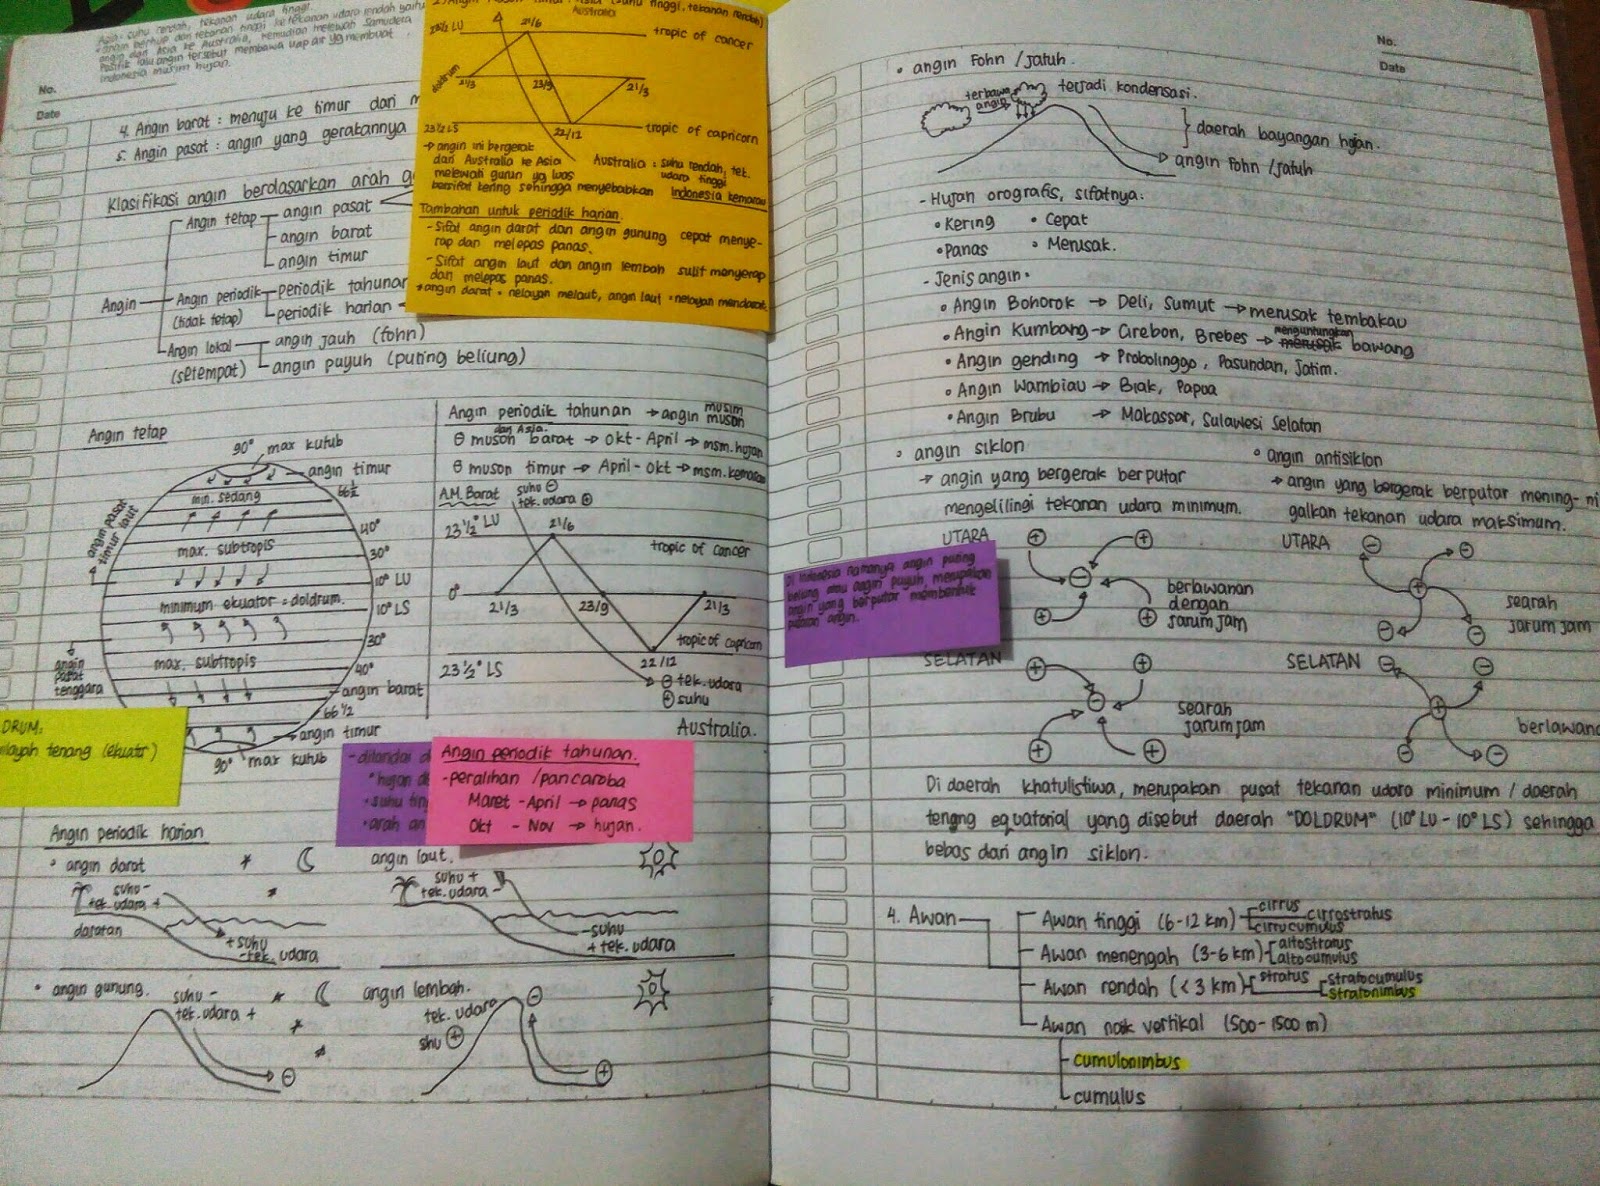 Asia: suhu rendah, tekanan udara tinggi.
angin dari Asia ke Australia, kemudian melewati Samudera
Pasifik lalu angin tersebut membawa uap air yg membuat
Indonesia musim hujan.
No.
Date
4. Angin barat : menuju ke timur dari
5. Angin pasat : angin yang gerakannya
Klasifikasi angin berdasarkan arah
Angin tetap
angin pasat
angin barat
angin timur
Angin
Angin periodik
(tidak tetap)
periodik tahunan
periodik harian
Angin lokal
(setempat)
angin jauh (fohn)
angin puyuh (puting beliung)
Australia
23½ LU
21/6
tropic of cancer
doldrum
21/3
23/9
21/3
23½ LS
22/12
tropic of capricorn
→ angin ini bergerak
dari Australia ke Asia
melewati gurun yg luas
bersifat kering sehingga menyebabkan Indonesia kemarau
Australia : suhu rendah, tek.
udara tinggi
Tambahan untuk periodik harian.
- Sifat angin darat dan angin gunung cepat menye-
rap dan melepas panas.
- Sifat angin laut dan angin lembah sulit menyerap
dan melepas panas.
* angin darat = nelayan melaut, angin laut = nelayan mendarat.
Angin tetap
90° max kutub
angin timur
66½
min. sedang
40°
max. subtropis
30°
10° LU
minimum ekuator = doldrum.
10° LS
30°
max. subtropis
40°
angin barat
66 1/2
angin timur
90° max kutub
angin pasat
timur laut
angin
pasat
tenggara
DRUM:
wilayah tenang (ekuator)
Angin periodik tahunan → angin musim
muson
dari Asia.
⊖ muson barat → Okt - April → msm. hujan
⊖ muson timur → April - Okt → msm. kemarau
A.M. Barat
suhu ⊖
tek. udara ⊕
23 ½° LU
21/6
tropic of cancer
0°
21/3
23/9
21/3
tropic of capricorn
23 ½° LS
22/12
⊖ tek. udara
⊕ suhu
Australia.
- ditandai
• hujan
• suhu
• arah
Angin periodik tahunan.
- peralihan / pancaroba
Maret - April → panas
Okt - Nov → hujan.
Angin periodik harian
• angin darat
suhu -
tek. udara +
daratan
+ suhu
- tek. udara
angin laut.
suhu +
tek. udara -
- suhu
+ tek. udara
• angin gunung.
suhu -
tek. udara +
⊖
angin lembah.
tek. udara ⊖
shu ⊕
⊕
No.
Date
• angin Fohn / jatuh.
terbawa
angin
terjadi kondensasi.
daerah bayangan hujan.
angin Fohn / jatuh
- Hujan orografis, sifatnya:
• Kering • Cepat
• Panas • Merusak.
- Jenis angin •
• Angin Bohorok → Deli, Sumut → merusak tembakau
menguntungkan
• Angin Kumbang → Cirebon, Brebes → merusak bawang
• Angin gending → Probolinggo, Pasundan, Jatim.
• Angin Wambiau → Biak, Papua
• Angin Brubu → Makassar, Sulawesi Selatan
• angin siklon
→ angin yang bergerak berputar
mengelilingi tekanan udara minimum.
• angin antisiklon
→ angin yang bergerak berputar mening- ni
galkan tekanan udara maksimum.
UTARA
berlawanan
dengan
jarum jam
UTARA
searah
jarum jam
Di Indonesia namanya angin puting
beliung atau angin puyuh, merupakan
angin yang berputar membentuk
putaran angin.
SELATAN
searah
jarum jam
SELATAN
berlawana
Di daerah khatulistiwa, merupakan pusat tekanan udara minimum / daerah
tenang equatorial yang disebut daerah "DOLDRUM" (10° LU - 10° LS) sehingga
bebas dari angin siklon.
4. Awan
Awan tinggi (6-12 km)
cirrus
cirrostratus
cirrucumulus
Awan menengah (3-6 km)
altostratus
altocumulus
Awan rendah (< 3 km)
stratus
stratocumulus
stratonimbus
Awan naik vertikal (500-1500 m)
cumulonimbus
cumulus